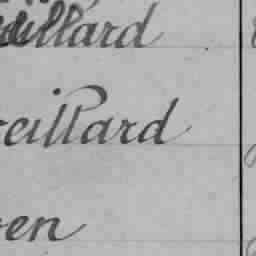 eillard
eillard
en